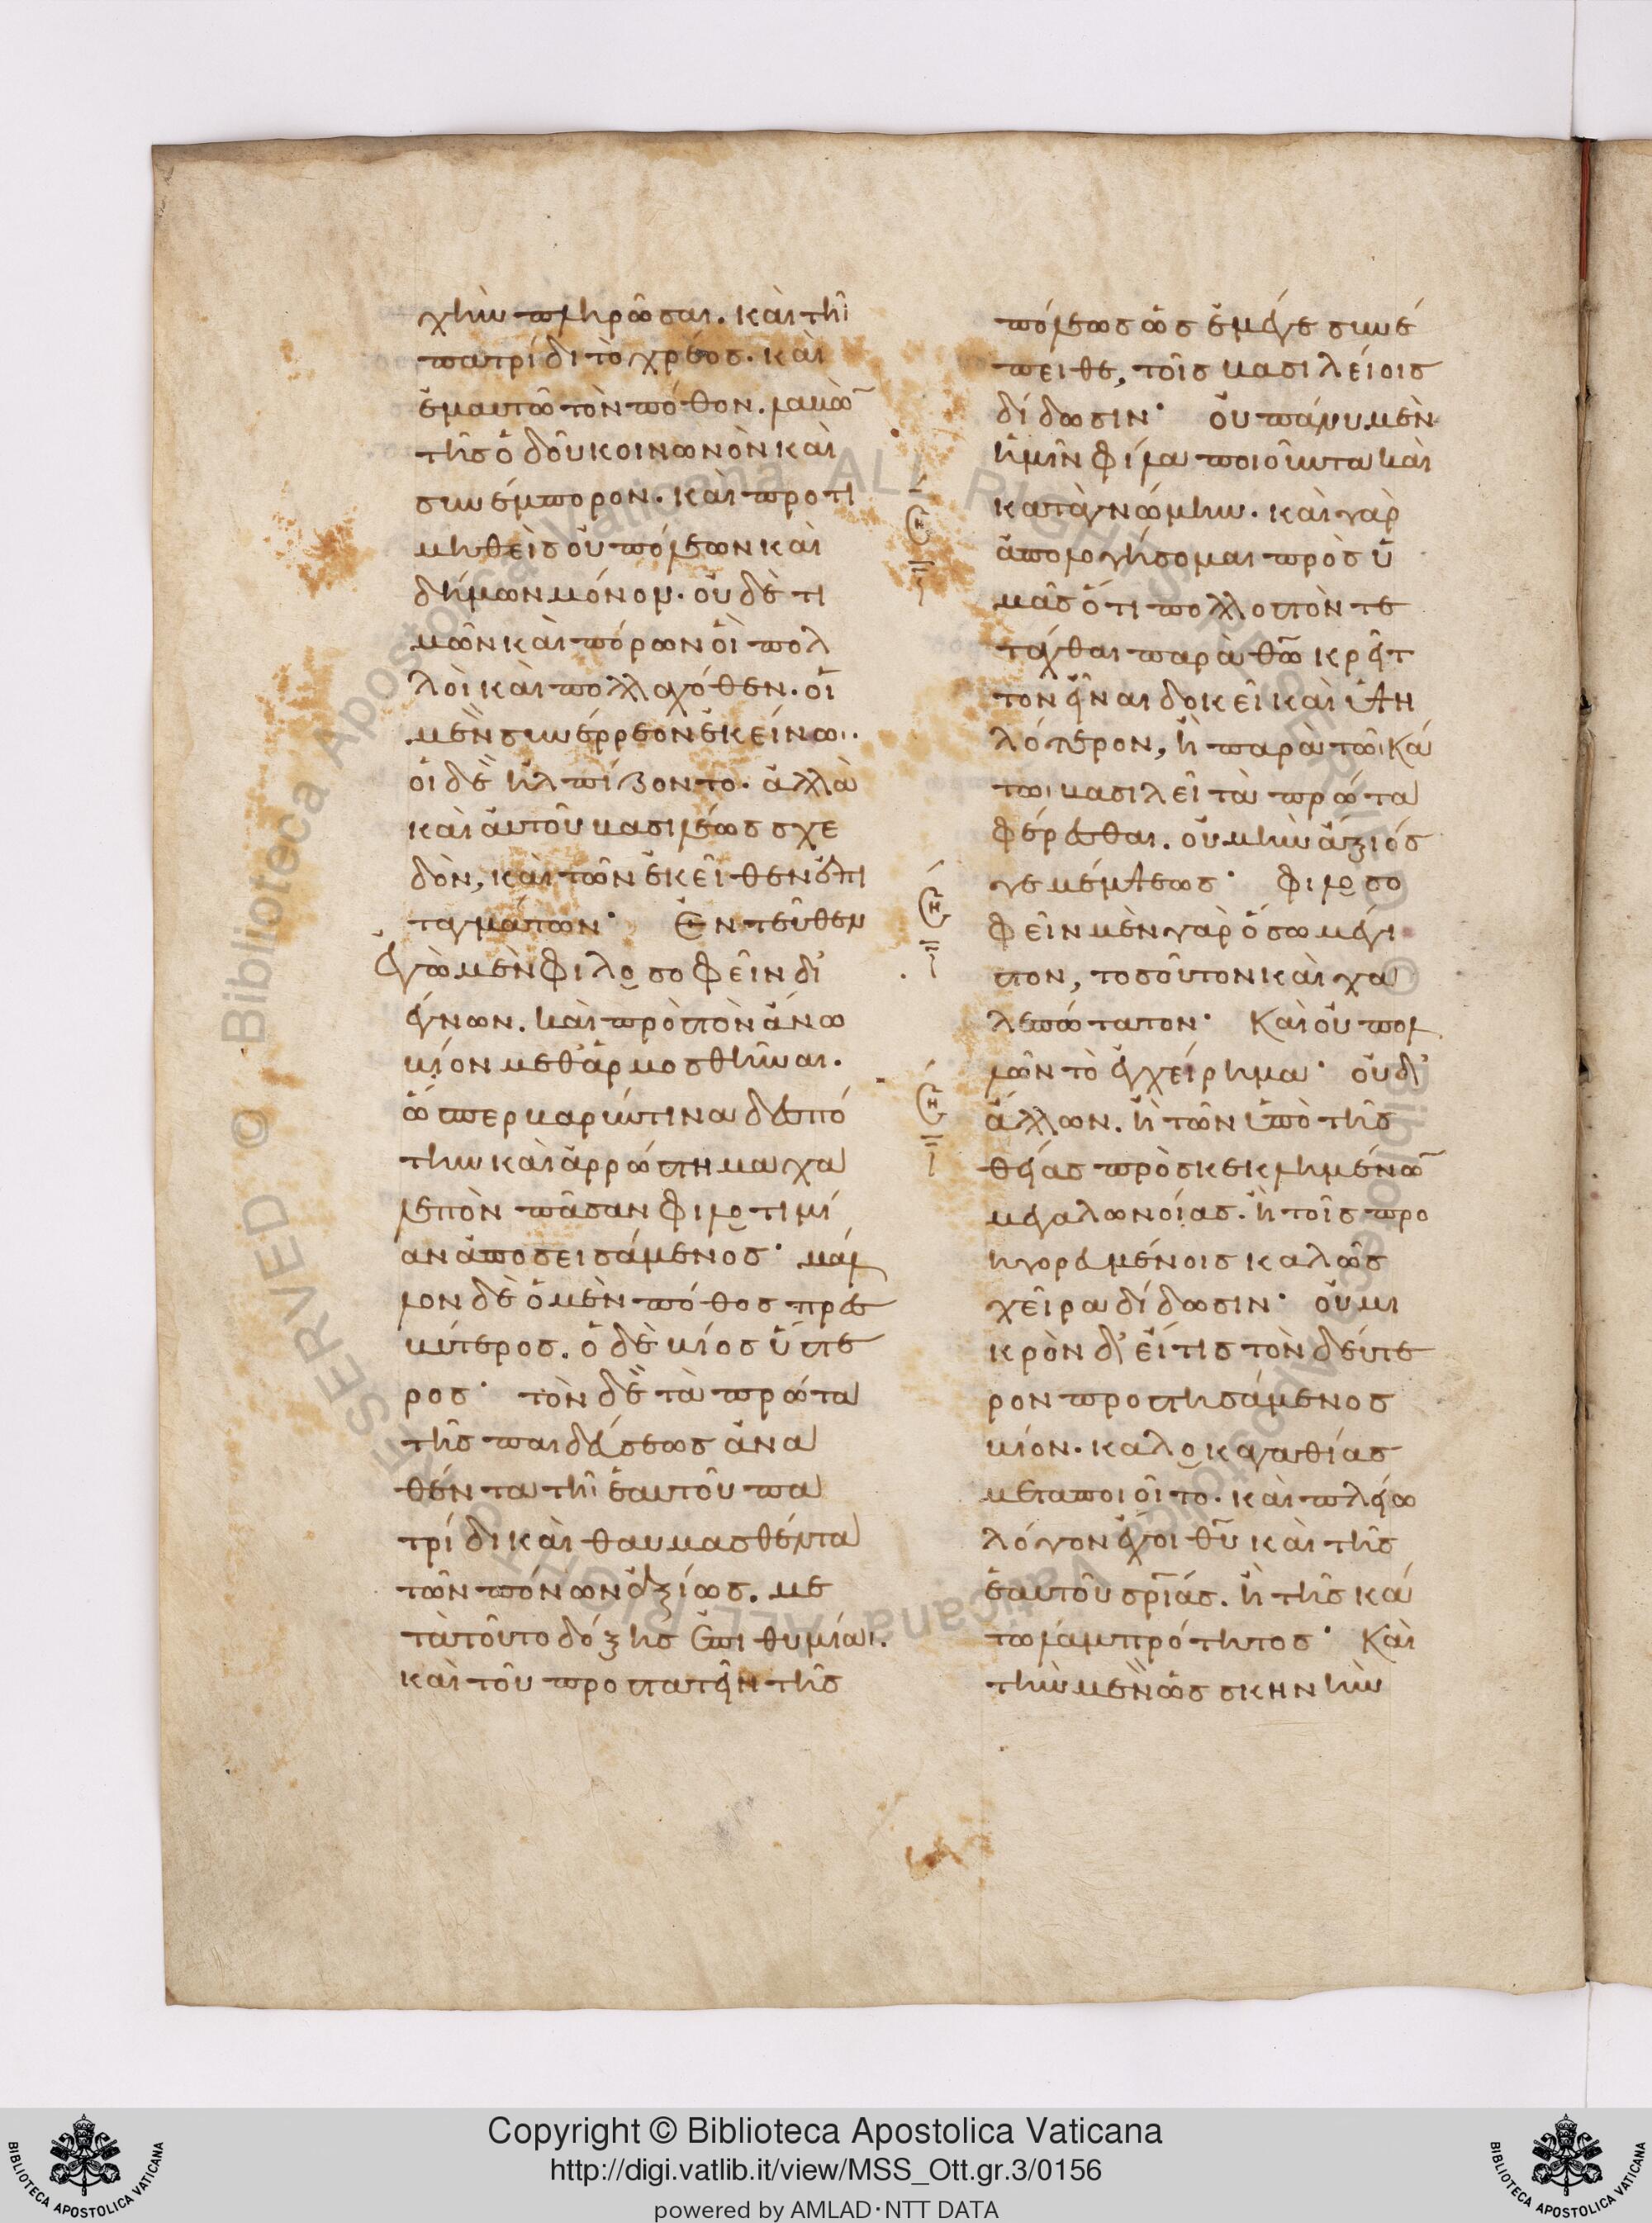 χὴν πληρῶσαι. καὶ τῆι
πατρίδι τὸ χρέος. καὶ
ἐμαυτῶ τὸν πόθον. λαβὼ̅
τῆς ὁδοῦ κοινωνὸν καὶ
συνέμπορον. καὶ προτι
μηθεὶς οὐ πόλεων καὶ
δήμων μόνον. οὐδὲ τι
μῶν καὶ πόρων οἳ πολ
λοὶ καὶ πολλαχόθεν. οἳ
μὲν συνέρρεον ἐκείνωι.
οἱ δὲ ἠλπίζοντο. ἀλλὰ
καὶ αὐτοῦ βασιλέως σχε
δὸν, καὶ τῶν ἐκεῖθεν ἐπι
ταγμάτων· Ἐντεῦθεν
ἐγὼ μὲν φιλοσοφεῖν δι'
έγνων. καὶ πρὸς τὸν ἄνω
βίον μεθ' ἁρμοσθῆναι.
ὥσπερ βαρύν τινα δεσπό
την καὶ ἀρρώστημα χα
λεπὸν πᾶσαν φιλοτιμί
αν ἀποσεισάμενος· μάλ
λον δὲ ὁ μὲν πόθος πρεσ
βύτερος. ὁ δὲ βίος ὕστε
ρος· τὸν δὲ τὰ πρῶτα
τῆς παιδεύσεως ἀνα
θέντα τῆι ἑαυτοῦ πα
τρίδι καὶ θαυμασθέντα
τῶν πόνων ἀξίως. με
τὰ τοῦτο δόξης ἐπιθυμίαι.
καὶ τοῦ προστατεῖν τῆς
πόλεως ὡς ἐμέ γε συνέ
πειθε, τοῖς βασιλείοις
δίδωσιν· οὐ πάνυ μὲν
ἡμῖν φίλα ποιοῦντα καὶ
κατὰ γνώμην. καὶ γὰρ
ἀπολογήσομαι πρὸς ὑ
μᾶς ὅτι πολλοστὸν τε
τάχθαι παρὰ θῶ̅ κρεῖτ
τον εἶναι δοκεῖ καὶ ὑψη
λότερον, ἢ παρὰ τῶι κά
τωι βασιλεῖ τὰ πρῶτα
φέρεσθαι. οὐ μὴν ἄξιός
γε μέμψεως· φιλοσο
φεῖν μὲν γὰρ ὅσω μέγι
στον, τοσοῦτον καὶ χα
λεπώτατον· Καὶ οὐ πολ
λῶν τὸ ἐγχείρημα· οὐδ'
ἄλλων. ἢ τῶν ὑπὸ τῆς
θείας προσκεκλημένω̅
μεγαλωνοίας. ἢ τοῖς προ
ηγορευμένοις καλῶς
χεῖρα δίδωσιν· οὐ μι
κρὸν δ' εἴ τις τὸν δεύτε
ρον προστησάμενος
βίον. καλοκαγαθίας
μεταποιοῖτο. καὶ πλείω
λόγον ἔχοι θῦ̅ καὶ τῆς
ἑαυτοῦ σρ̅ίας. ἢ τῆς κά
τω λαμπρότητος· Καὶ
τὴν μὲν ὡς σκηνὴν
Copyright © Biblioteca Apostolica Vaticana
http://digi.vatlib.it/view/MSS_Ott.gr.3/0156
powered by AMLAD·NTT DATA
BIBLIOTECA APOSTOLICA VATICANA
BIBLIOTECA APOSTOLICA VATICANA